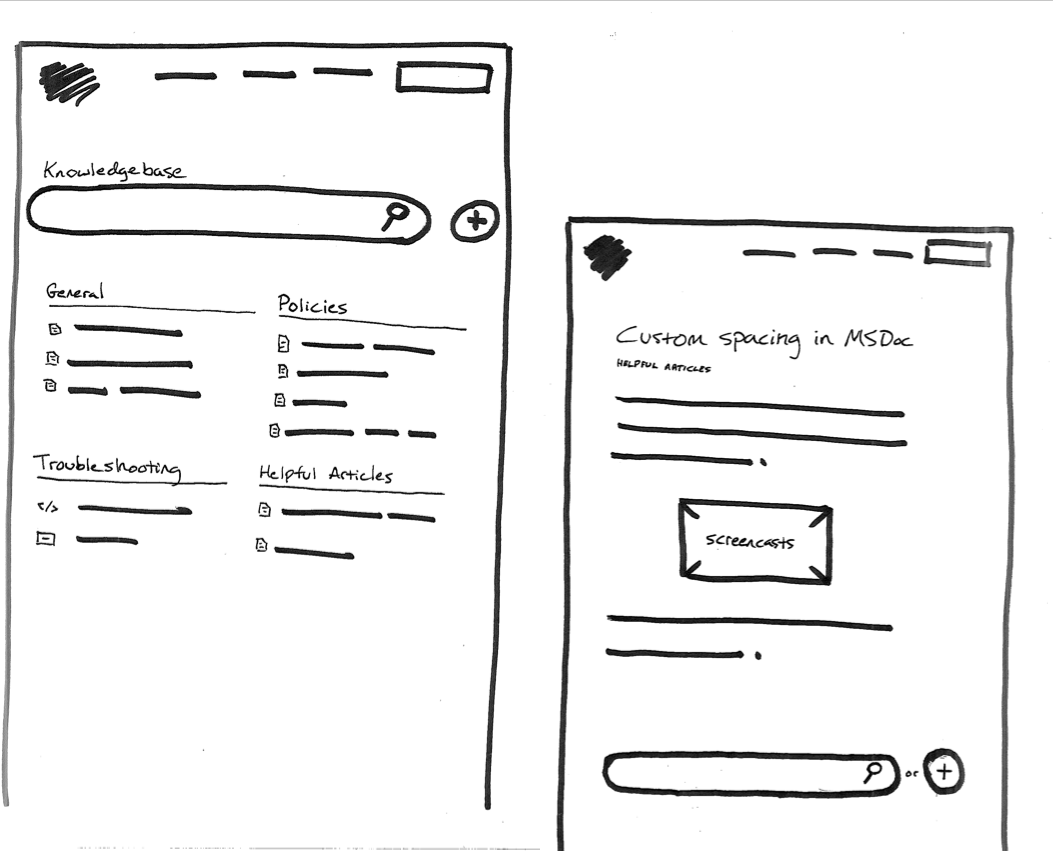 Knowledgebase
General
Policies
Troubleshooting
</>
Helpful Articles
Custom spacing in MSDoc
HELPFUL ARTICLES
screencasts
or